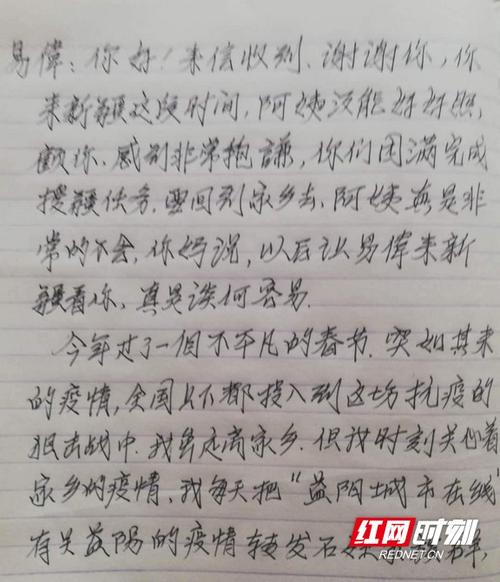 易偉：你好！来信收到、谢谢你，你
来新疆这段时间，阿姨没能好好照
顧你、感到非常抱謙，你们图满完成
援疆任务.要回到家乡去、阿姨真是非
常的不舍.你妈说，以后让易偉来新
疆看你，真是谈何容易.
今年过了一個不平凡的春节.突如其来
的疫情，全国上下都投入到这场抗疫的
狙击战中.我虽远离家乡.但我时刻关心着
家乡的疫情、我每天把“益阳城市在线”
有关益陽的疫情转发石
红网时刻
REDNET.CN